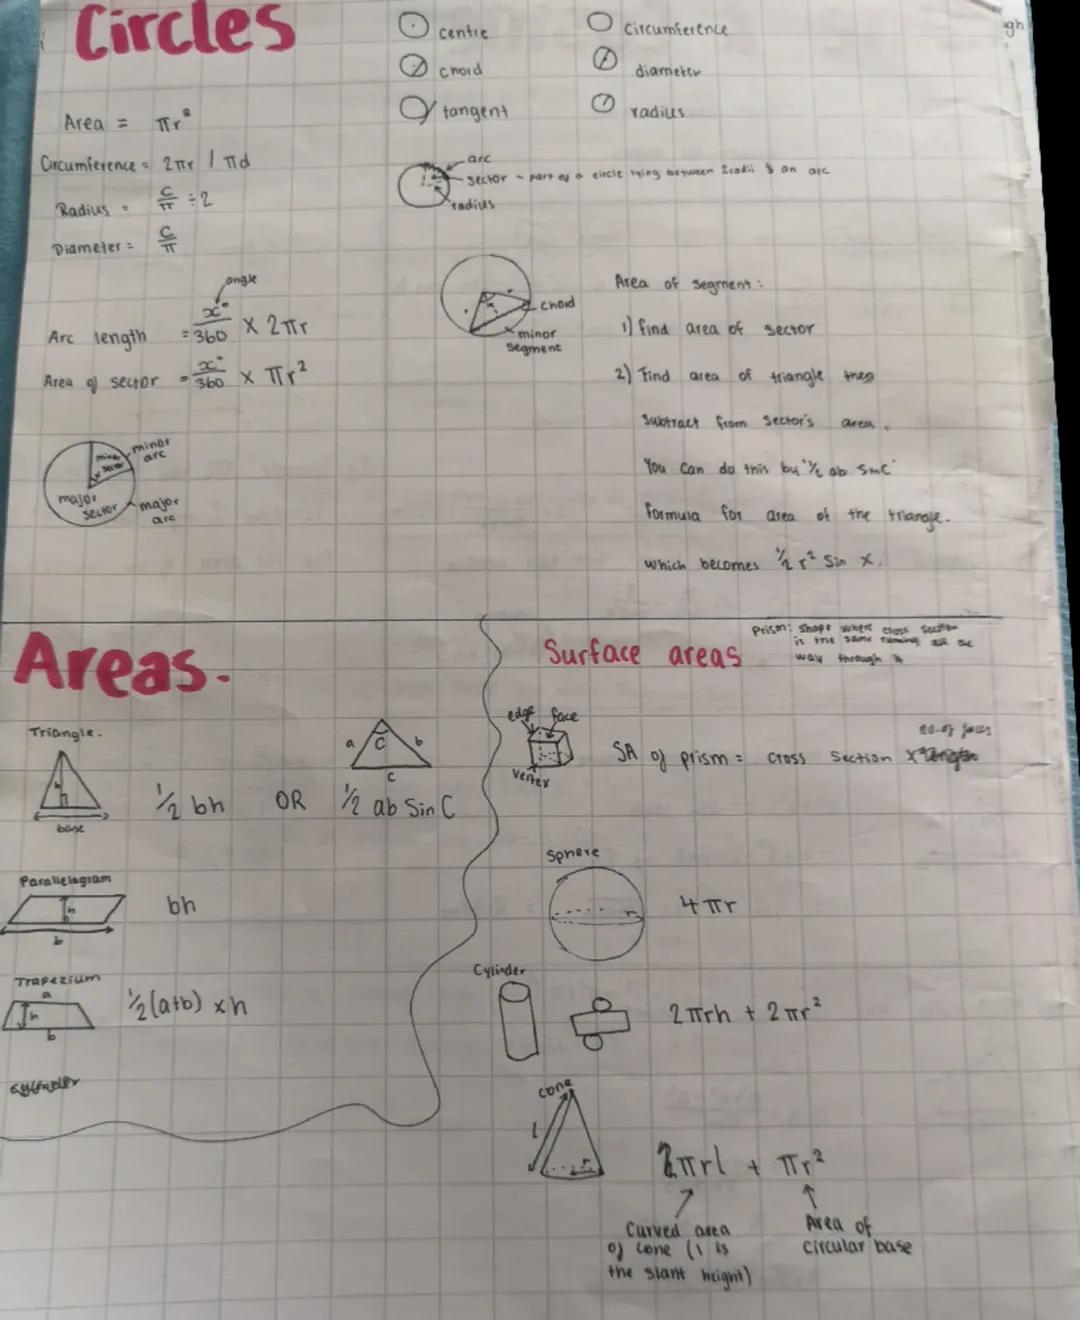 Circles
gh
centre
circumference
chord
diameter
tangent
radius
Area = πr²
Circumference = 2πr | πd
Radius = C/π ÷ 2
Diameter = C/π
arc
sector - part of a circle lying between 2radii & an arc
radius
angle
Arc length = x°/360 × 2πr
Area of sector = x°/360 × πr²
minor sector
minor arc
major sector
major arc
chord
minor segment
Area of segment:
1) find area of sector
2) Find area of triangle then
subtract from sector's area.
You can do this by "½ ab SinC"
formula for area of the triangle.
which becomes ½ r² Sin x.
Areas.
Triangle.
h
base
½ bh OR ½ ab Sin C
a C b
c
Parallelogram
h
b
bh
Trapezium
a
h
b
½(a+b) × h
cylinder
Surface areas
Prism: Shape where cross section
is the same running all the
way through
edge face
vertex
no. of faces
SA of prism = cross section × length
Sphere
r
4πr
Cylinder
2πrh + 2πr²
Cone
l
r
πrl + πr²
Curved area
of cone (l is
the slant height)
Area of
circular base